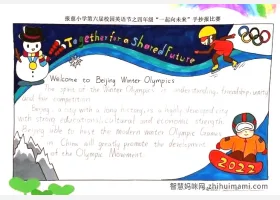 张童小学第六届校园英语节之四年级“一起向未来”手抄报比赛
Together for a Shared Future
Welcome to Beijing Winter Olympics
The spirit of the Winter Olympics is understanding, friendship, unity
and fair competition.
Beijing, with a long history, is a highly developed city
with strong educational, cultural and economic strength.
Beijing able to host the modern winter Olympic Games
in China will greatly promote the development
of the Olympic Movement.
2022
智慧妈咪网 zhihuimami.com